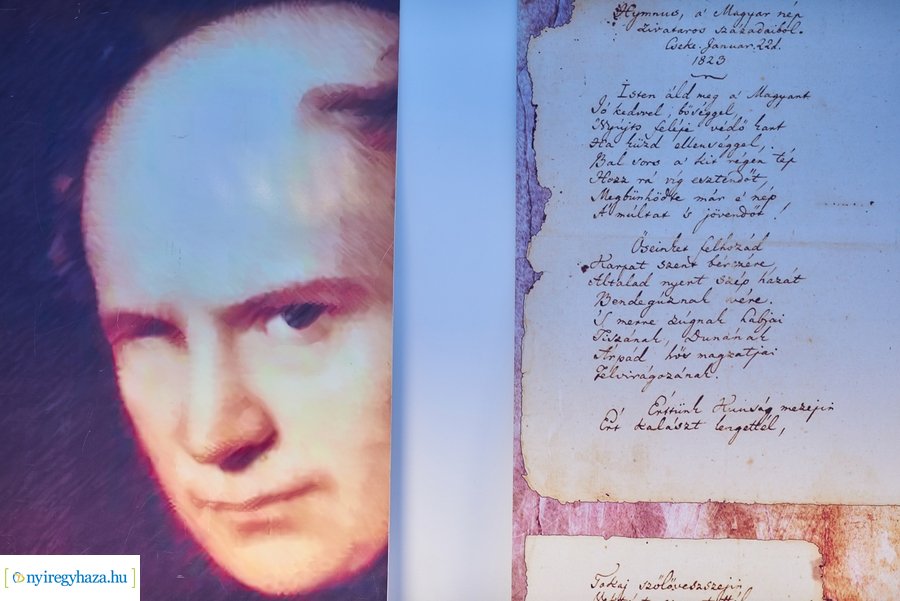 Hymnus, a' Magyar nép
zivataros századaiból.
Cseke. Januar. 22d.
1823
Isten áld meg a' Magyart
Jó kedvvel, bőséggel,
Nyújts feléje védő kart
Ha küzd ellenséggel,
Bal sors a' kit régen tép
Hozz rá víg esztendőt,
Megbűnhődte már e' nép
A' múltat 's jövendőt!
Őseinket felhozád
Kárpát szent bérczére,
Általad nyert szép hazát
Bendegúznak vére.
'S merre zúgnak habjai
Tiszának, Dunának
Árpád hős magzatjai
Felvirágozának.
Értünk Kunság mezejin
Ért kalászt lengettél,
Tokaj szőlőveszszejin
nyiregyhaza.hu